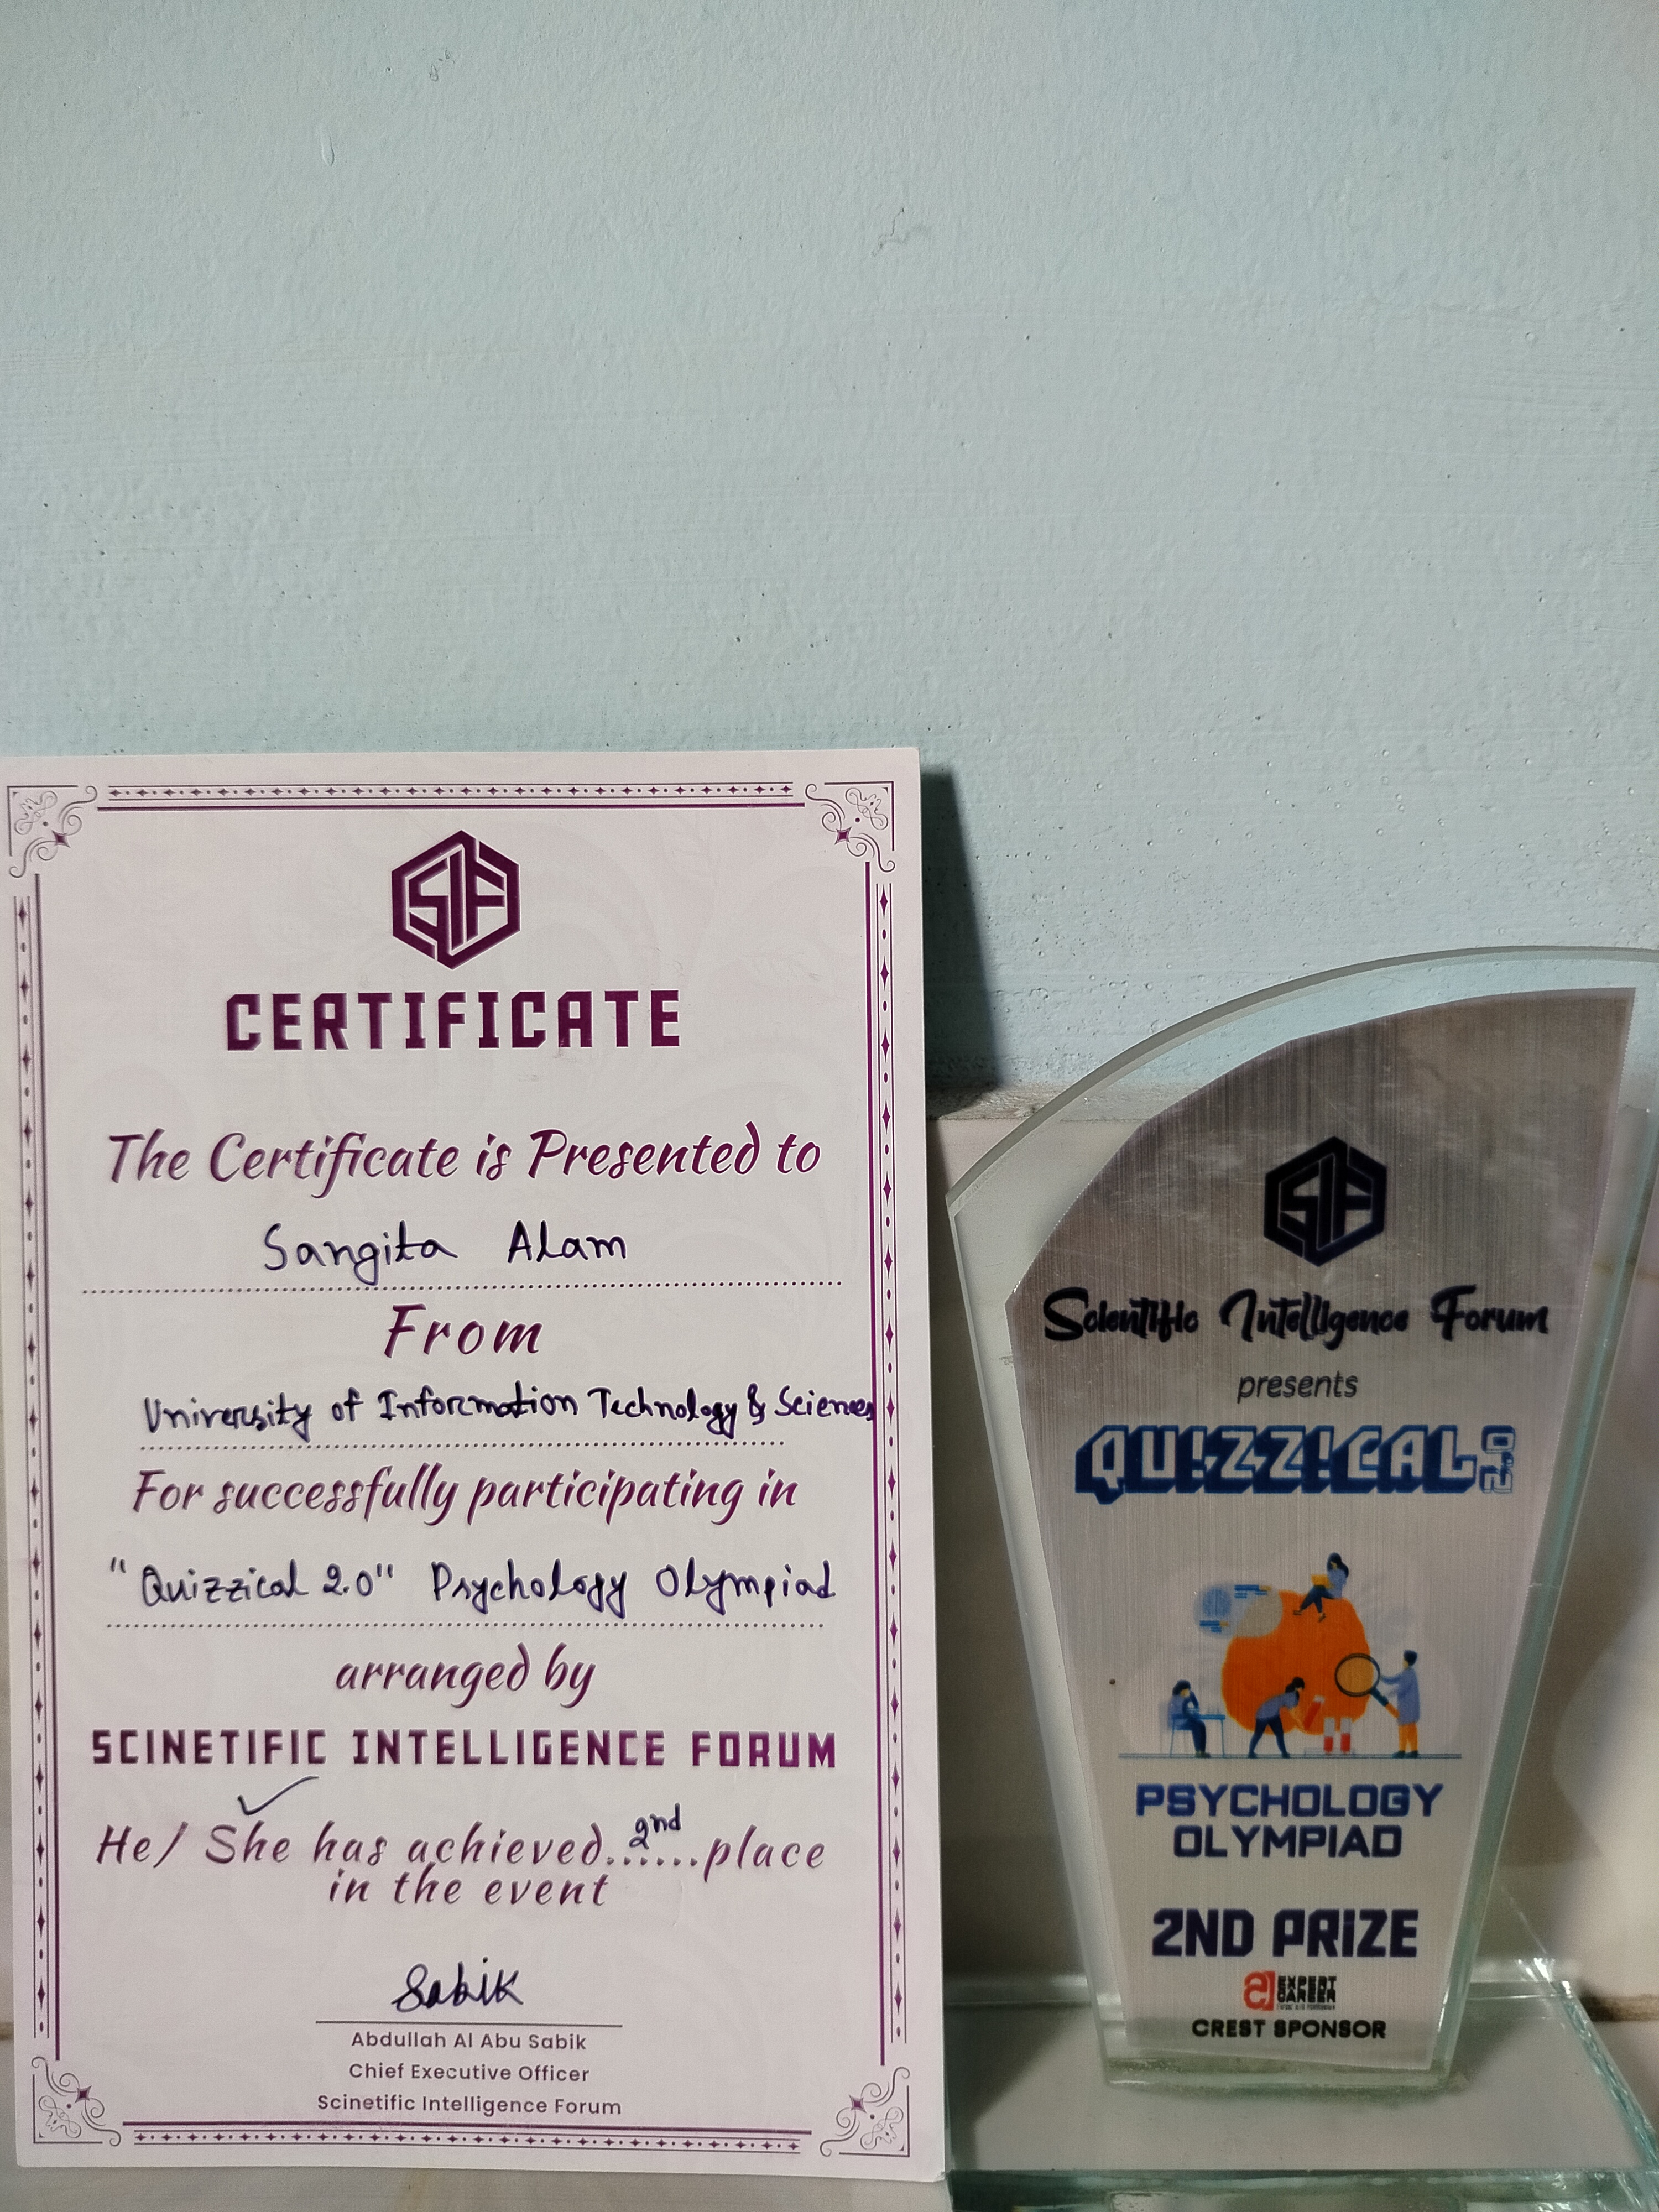 SIF
CERTIFICATE
The Certificate is Presented to
Sangita Alam
From
University of Information Technology & Sciences
For successfully participating in
"Quizzical 2.0" Psychology Olympiad
arranged by
SCINETIFIC INTELLIGENCE FORUM
He/ She has achieved..2nd..place
in the event
Sabik
Abdullah Al Abu Sabik
Chief Executive Officer
Scinetific Intelligence Forum
SIF
Scientific Intelligence Forum
presents
QU!ZZ!CAL 2.0
PSYCHOLOGY
OLYMPIAD
2ND PRIZE
EXPERT
CAREER
CREST SPONSOR